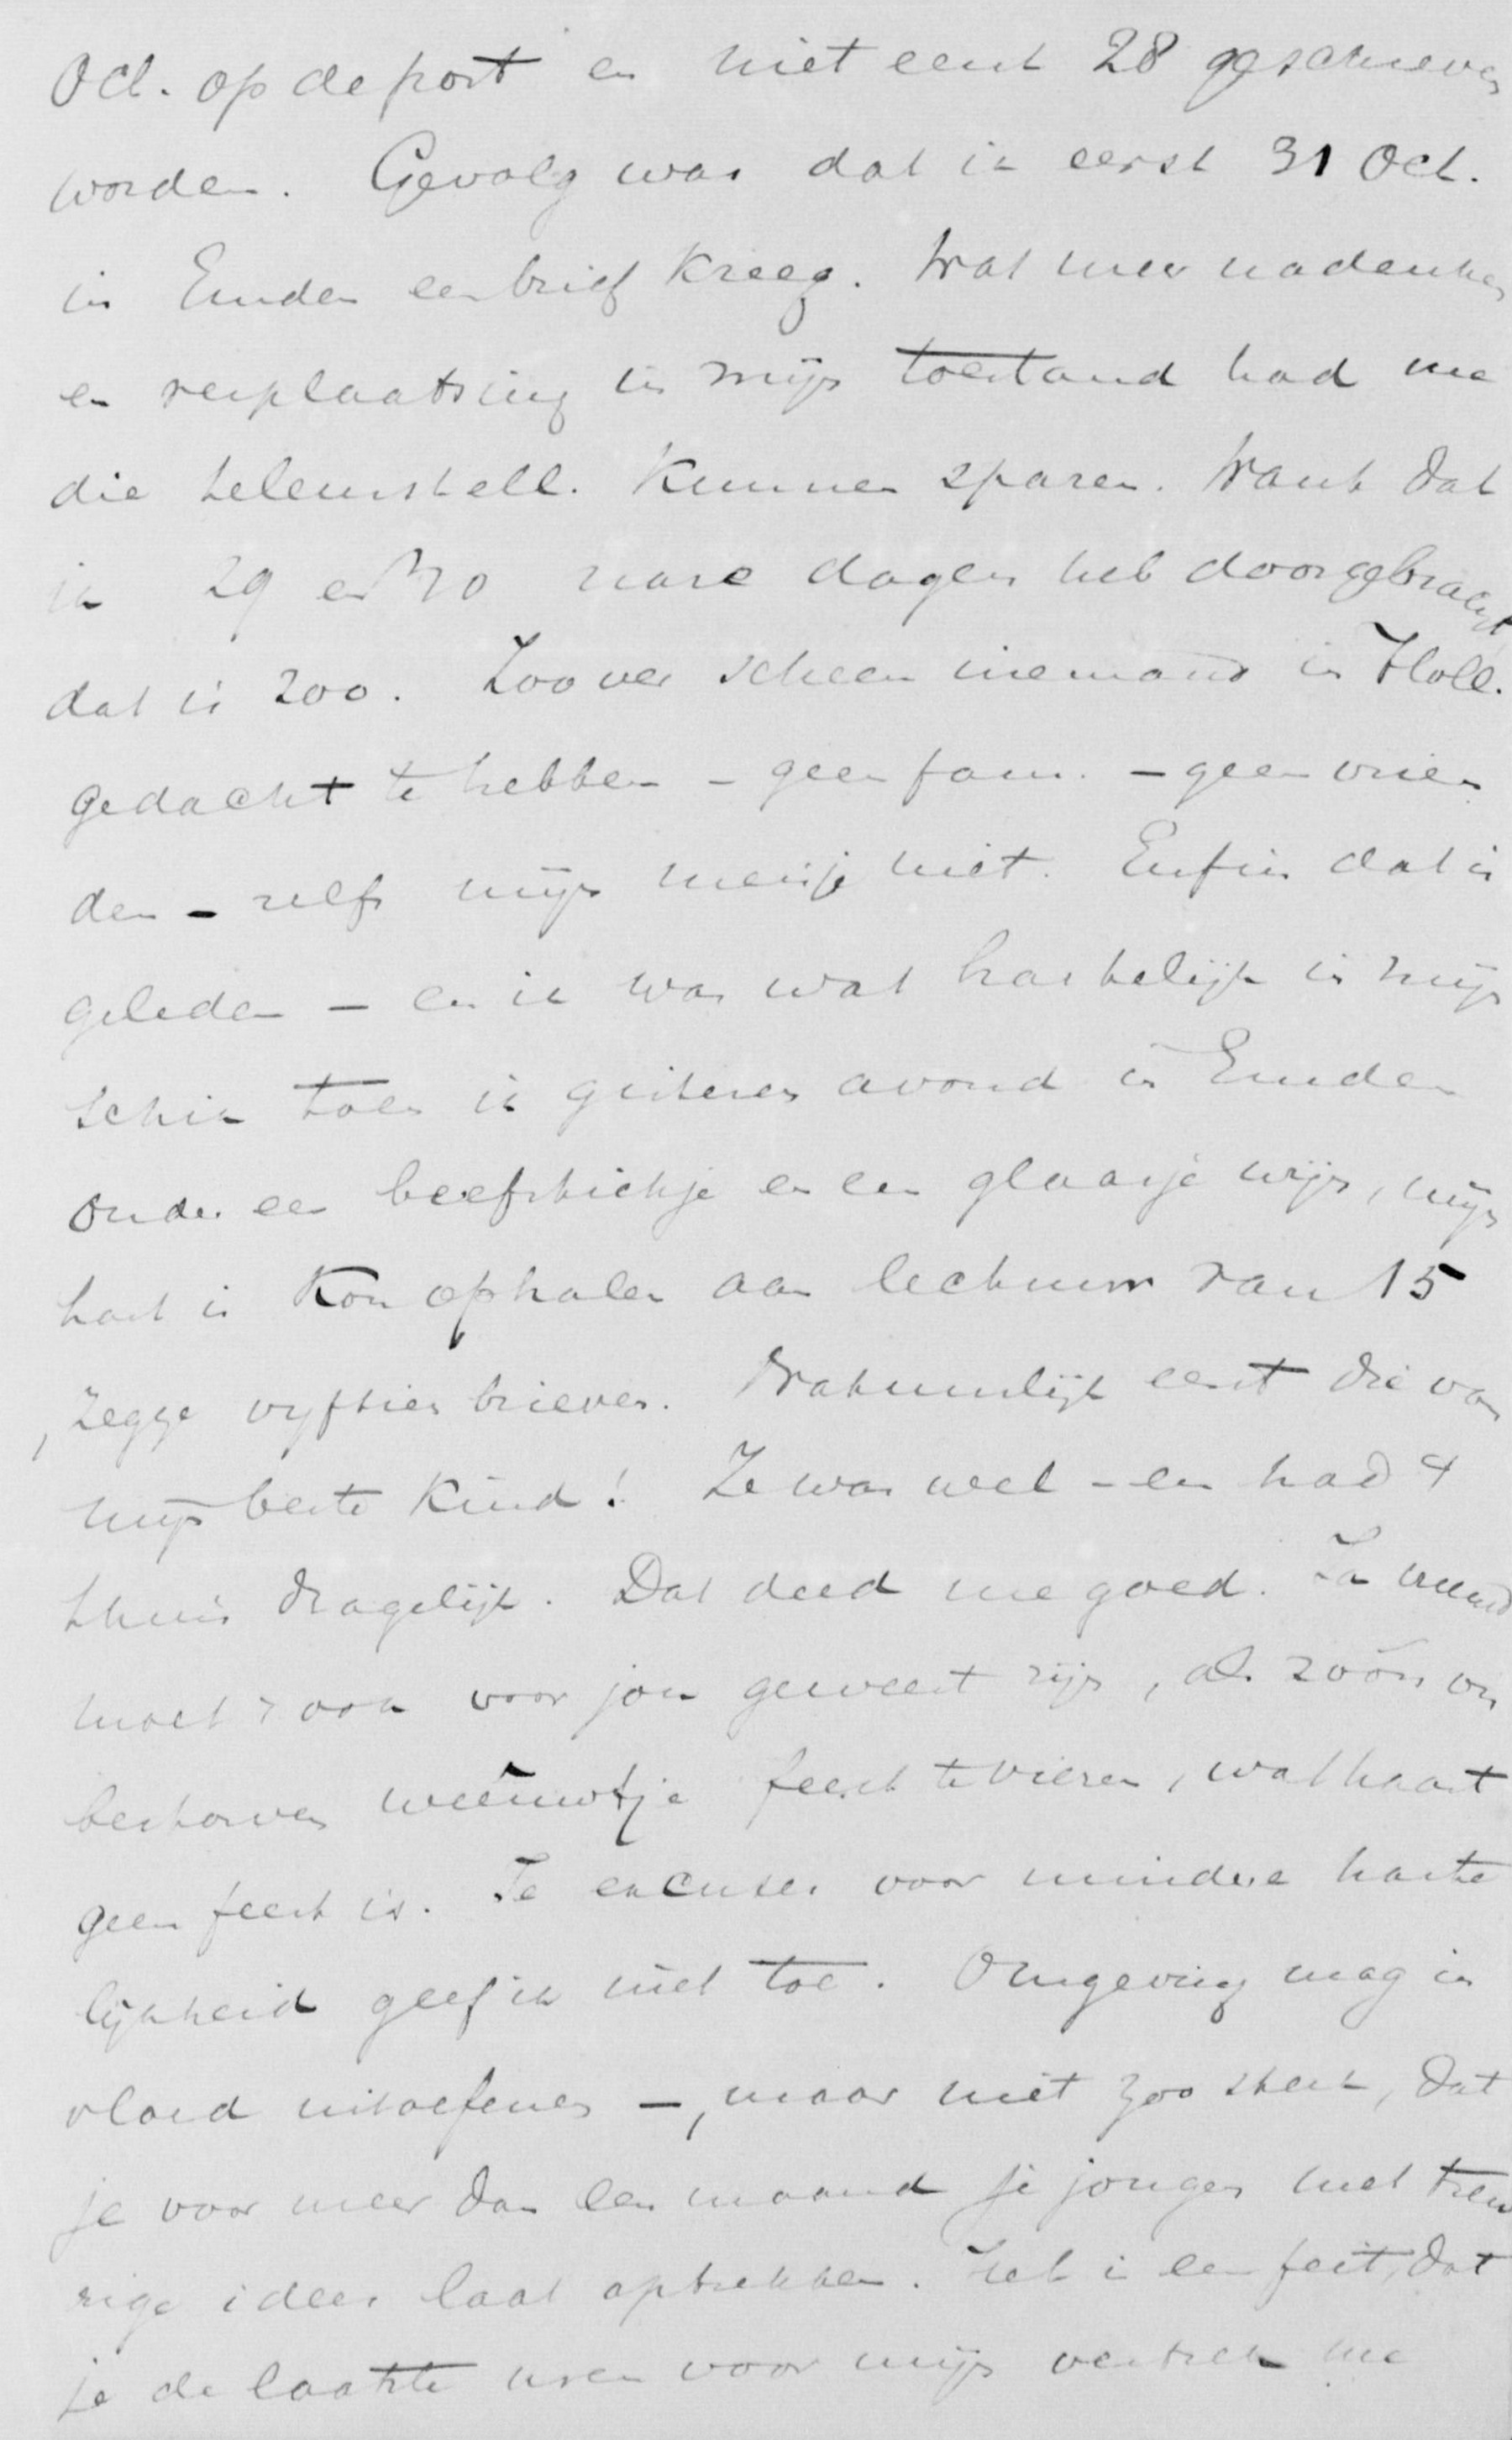 Oct. op de post en niet eerst 28 geschreven
worden. Gevolg was dat ik eerst 31 Oct.
in Emden een brief kreeg. Wat meer nadenken
en verplaatsing in mijn toestand had me
die teleurstell. kunnen sparen. Want dat
ik 29 en 30 nare dagen heb doorgebracht
dat is zoo. Zoover scheen niemand in Holl.
gedacht te hebben – geen fam. – geen vrien
den – zelfs mijn meisje niet. Enfin dat is
geleden – en ik was wat hartelijk in mijn
schik toen ik gisteren avond in Emden
onder een beefstickje en een glaasje wijn, mijn
hart is kon ophalen aan lectuur van 15
, zegge vyftien brieven. Natuurlijk eerst die van
mijn beste kind! Ze was wel – en had 't
thuis dragelijk. Dat deed me goed. Ja vreemd
moet 't ook voor jou geweest zijn, als zóó'n on
bestorven weeuwtje feest te vieren, wat haast
geen feest is. Je excuses voor mindere harte
lijkheid geef ik niet toe. Omgeving mag in
vloed uitoefenen –, maar niet zoo sterk, dat
je voor meer dan een maand je jongen met treu
rige idees laat optrekken. Het is een feit, dat
je de laatste uren voor mijn vertrek me